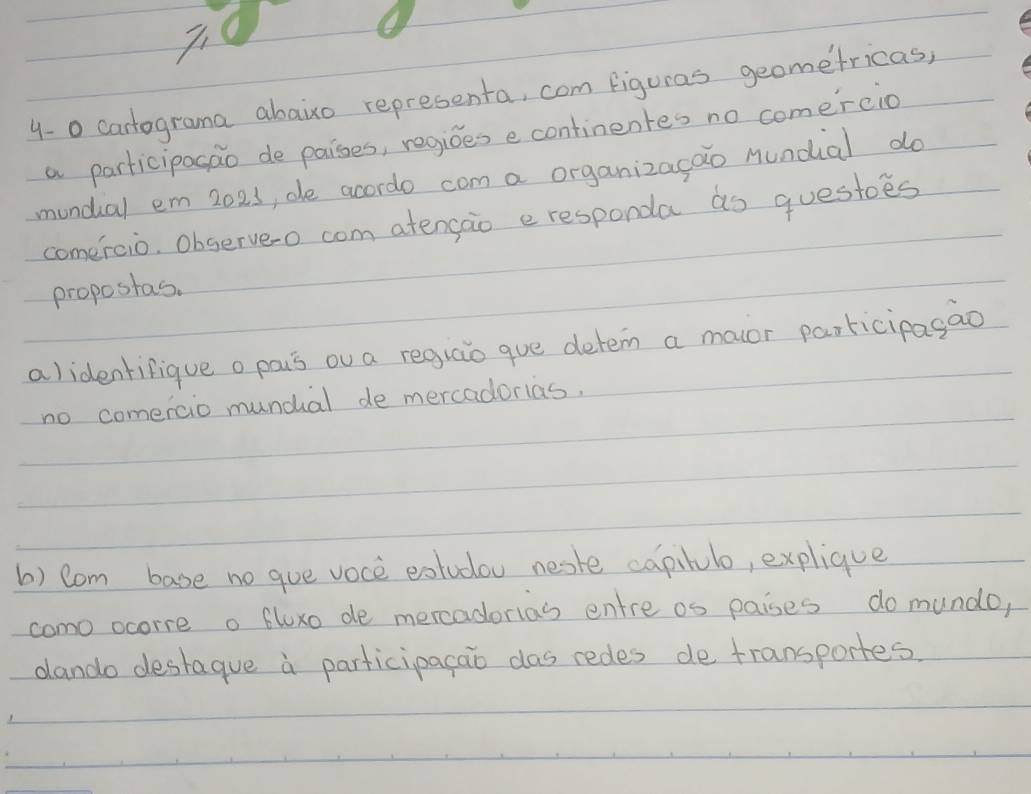 4- O cartograma abaixo representa, com figuras geométricas,
a participação de países, regiões e continentes no comércio
mundial em 2021, de acordo com a organização Mundial do
comércio. Observe-o com atenção e responda às questões
propostas.
a) identifique o país ou a região que detém a maior participação
no comércio mundial de mercadorias.
b) Com base no que você estudou neste capítulo, explique
como ocorre o fluxo de mercadorias entre os países do mundo,
dando destaque à participação das redes de transportes.